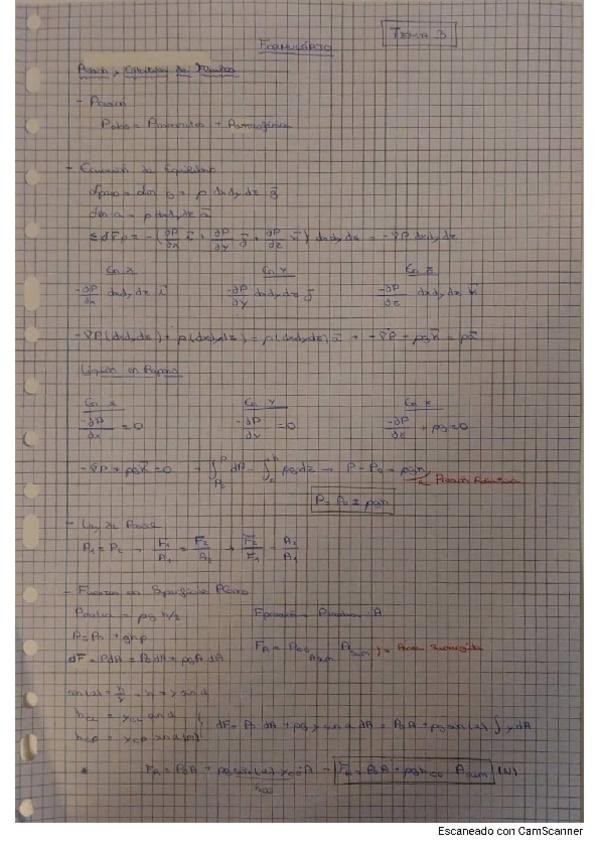 TEMA 3
FORMULARIO
Presión y Ecuación de Fluidos
- Presión
Pabs = Pmanométrica + Patmosférica
- Ecuación de Equilibrio
dFpeso = dm g = ρ dxdydz g⃗
dm a = ρ dxdydz a⃗
Σ dF⃗p = -(∂P/∂x i⃗ + ∂P/∂y j⃗ + ∂P/∂z k⃗) dxdydz = -∇P dxdydz
En X En Y En Z
-∂P/∂x dxdydz i⃗ -∂P/∂y dxdydz j⃗ -∂P/∂z dxdydz k⃗
-∇P (dxdydz) + ρ(dxdydz) = ρ(dxdydz) a⃗ → -∇P + ρgk⃗ = ρa⃗
Líquido en Reposo
En X En Y En Z
-∂P/∂x = 0 -∂P/∂y = 0 -∂P/∂z + ρg = 0
-∇P + ρgk⃗ = 0 → ∫ dP = ∫ ρg dz → P - P0 = ρgh
Presión Relativa
P = P0 ± ρgh
- Ley de Pascal
P1 = P2 → F1/A1 = F2/A2 → F2/F1 = A2/A1
- Fuerzas en Superficies Planas
= ρg h/2 A
P = P0 + ρgh
dF⃗ = PdA = P0 dA + ρgh dA FR = PCG Asum Área sumergida
sen(α) = h/y → h = y sen α
hCG = yCG sen α
hCP = yCP sen α dF = P0 dA + ρg y sen α dA = P0A + ρg sen(α) ∫ y dA
* FR = P0A + ρg sen(α) yCG A → FR = P0A + ρghCG Asum (N)
hCG
Escaneado con CamScanner